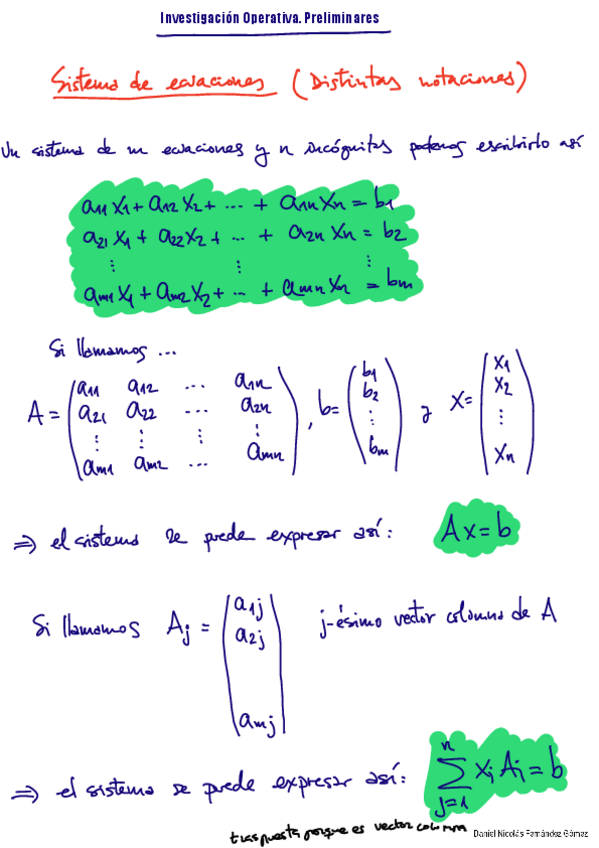 Investigación Operativa. Preliminares
Sistema de ecuaciones (Distintas notaciones)
Un sistema de m ecuaciones y n incógnitas podemos escribirlo así
a11 x1 + a12 x2 + ... + a1n xn = b1
a21 x1 + a22 x2 + ... + a2n xn = b2
⋮ ⋮ ⋮
am1 x1 + am2 x2 + ... + amn xn = bm
Si llamamos ...
A = (a11 a12 ... a1n
a21 a22 ... a2n
⋮ ⋮ ⋮ ⋮
am1 am2 ... amn), b = (b1
b2
⋮
bm) y x = (x1
x2
⋮
xn)
⇒ el sistema se puede expresar así: Ax = b
Si llamamos Aj = (a1j
a2j
amj) j-ésimo vector columna de A
⇒ el sistema se puede expresar así: ∑_{j=1}^{n} xj Aj = b
traspuesta porque es vector columna
Daniel Nicolás Fernández Gómez